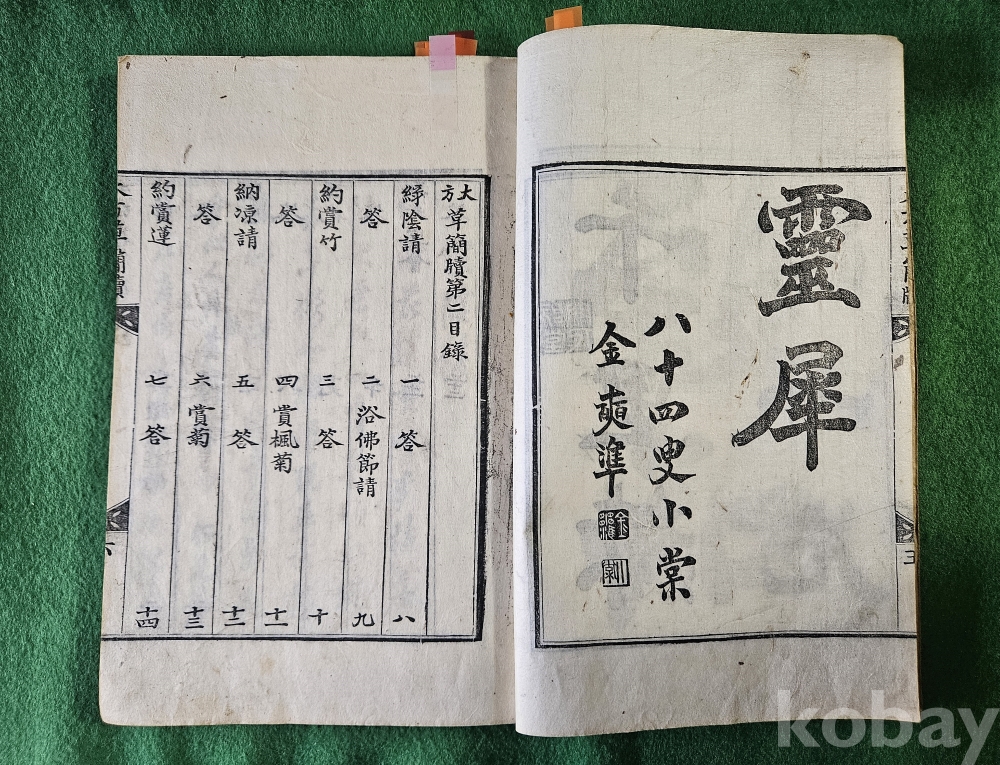 靈犀
八十四叟小棠
金奭準
三
大方草簡牘第二目錄
綠陰請 一 答 八
答 二 浴佛節請 九
約賞竹 三 答 十
答 四 賞楓菊 十一
納凉請 五 答 十二
答 六 賞菊 十三
約賞蓮 七 答 十四
草簡牘
六
kobay